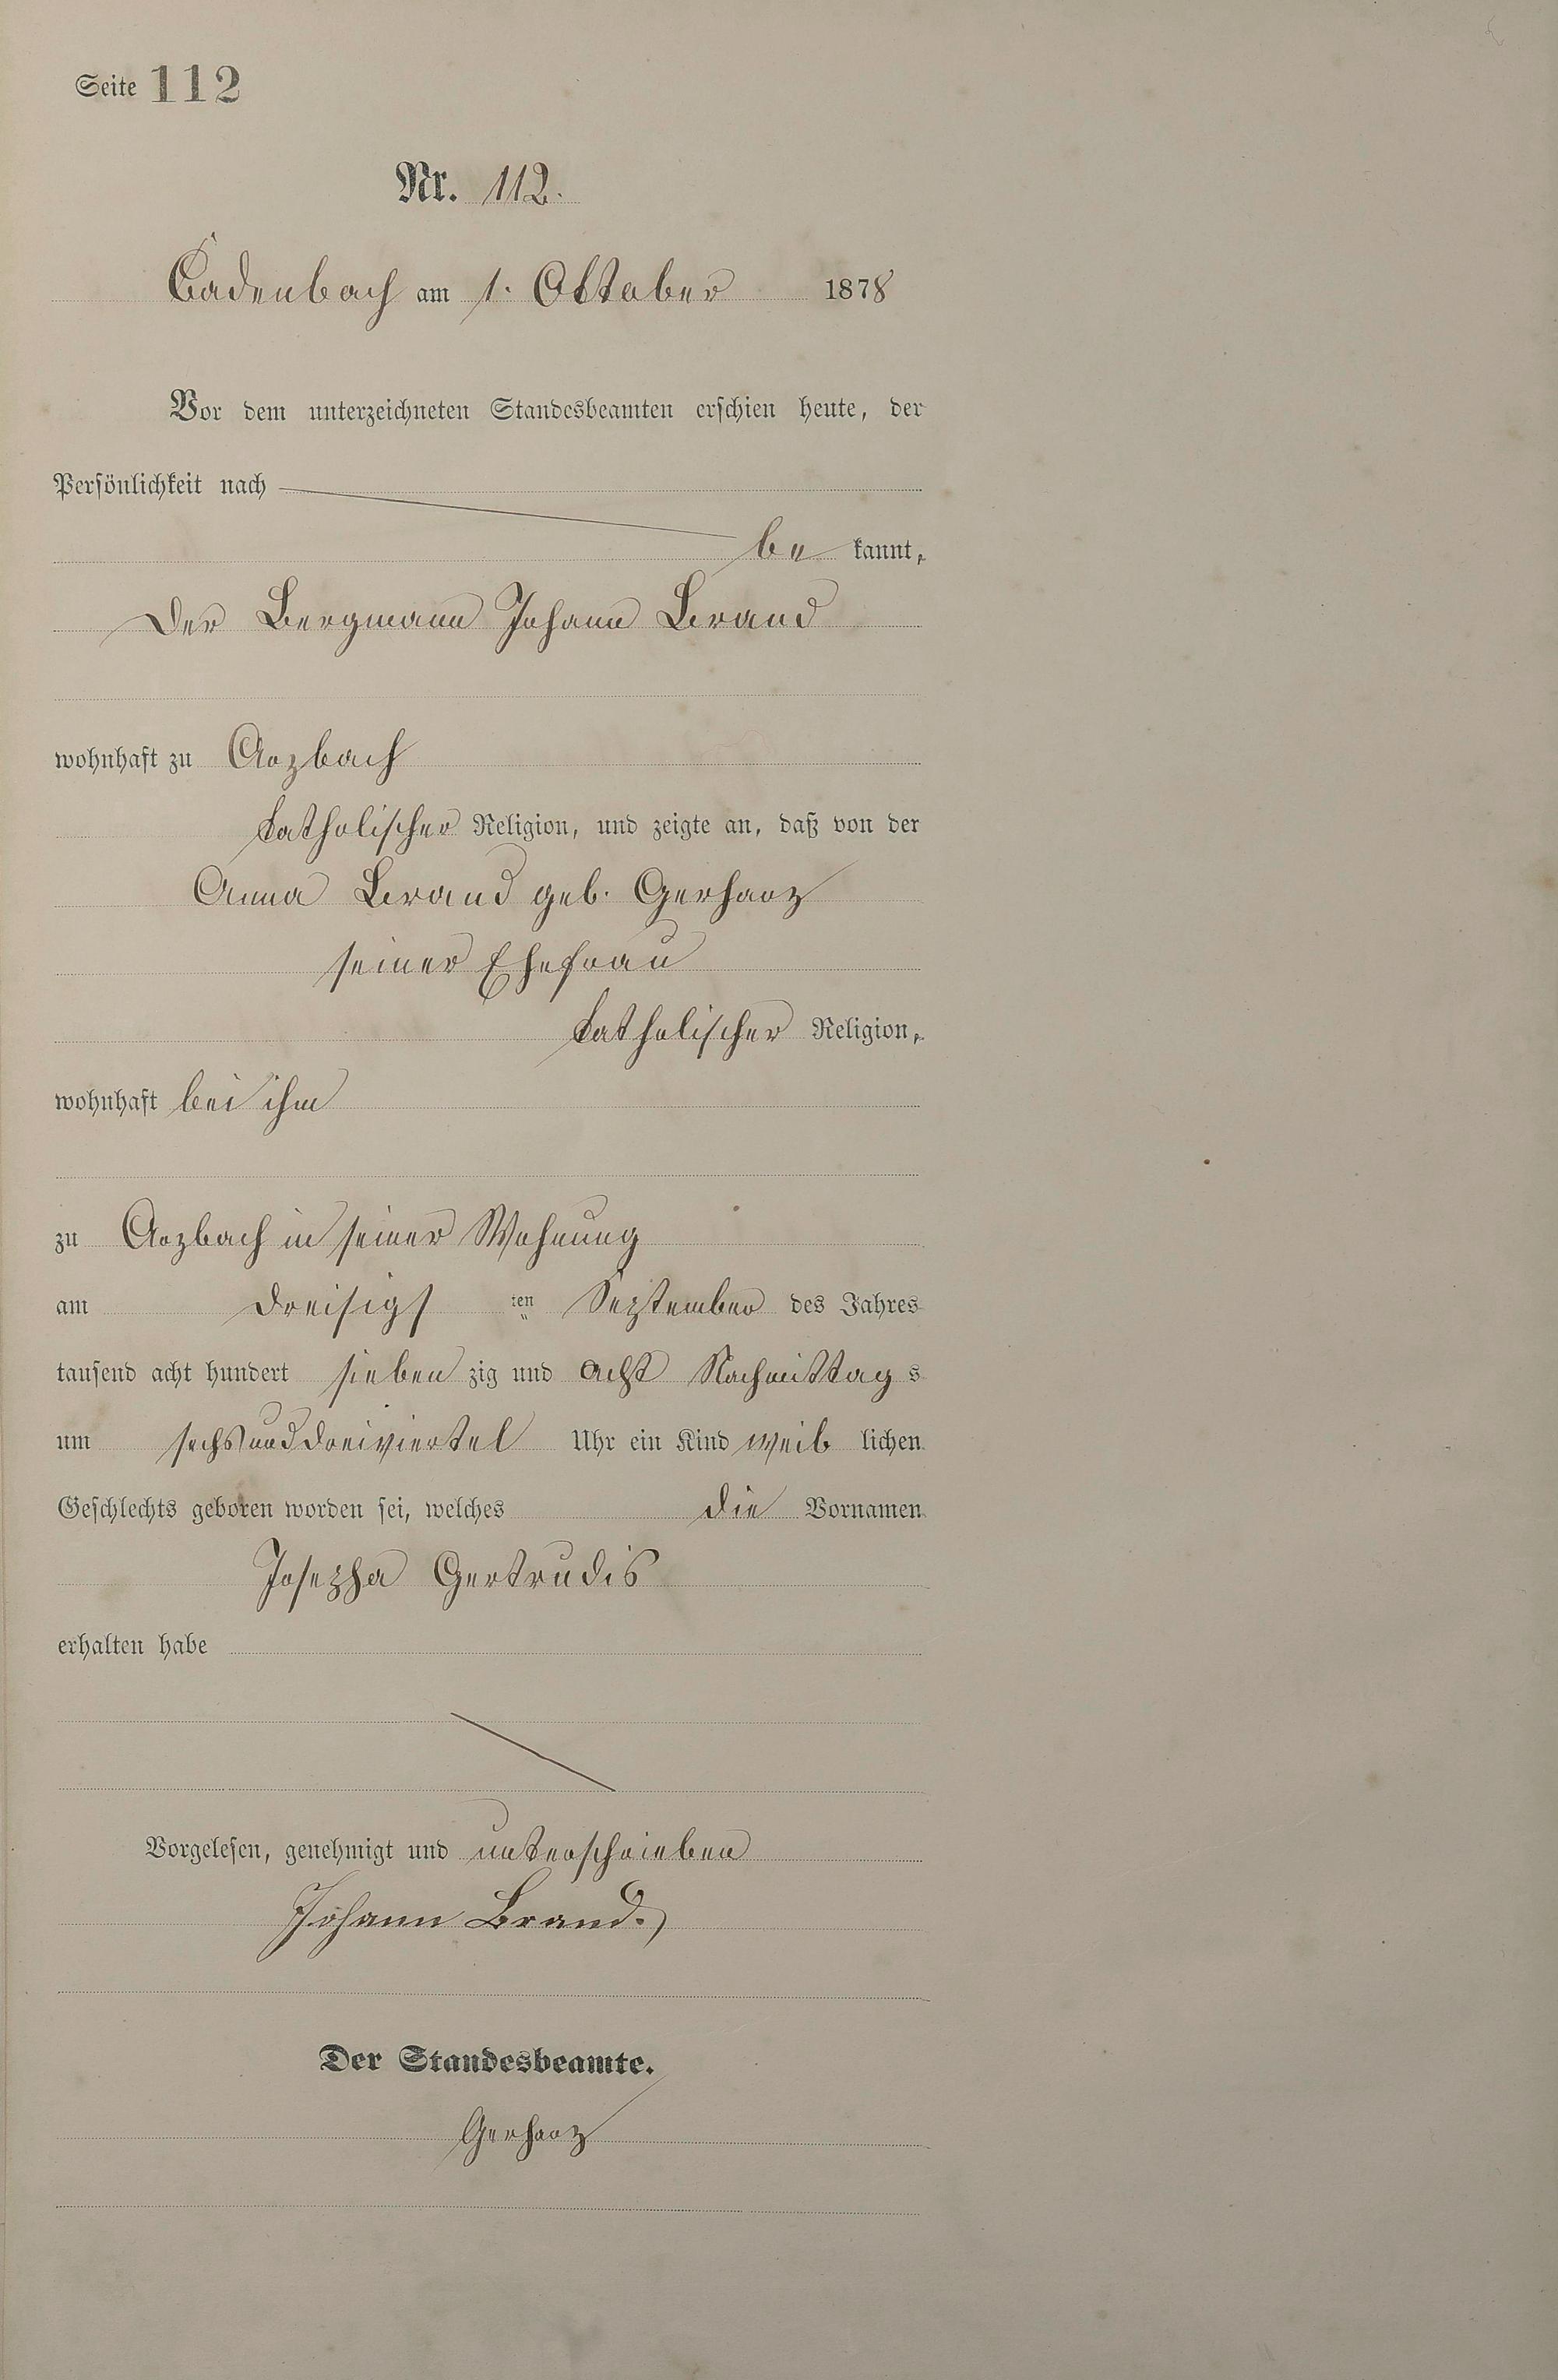 Seite 112
Nr. 112.
Cadenbach am 1. Oktober 1878
Vor dem unterzeichneten Standesbeamten erschien heute, der
Persönlichkeit nach
be kannt,
Der Bergmann Johann Brand
wohnhaft zu Arzbach
katholischer Religion, und zeigte an, daß von der
Anna Brand geb. Gerharz
seiner Ehefrau
katholischer Religion,
wohnhaft bei ihm
zu Arzbach in seiner Wohnung
am dreisigs ten September des Jahres
tausend acht hundert sieben zig und acht Nachmittag s
um sechs und dreiviertel Uhr ein Kind weib lichen
Geschlechts geboren worden sei, welches die Vornamen
Josepha Gertrudis
erhalten habe
Vorgelesen, genehmigt und unterschrieben
Johann Brand.
Der Standesbeamte.
Gerharz